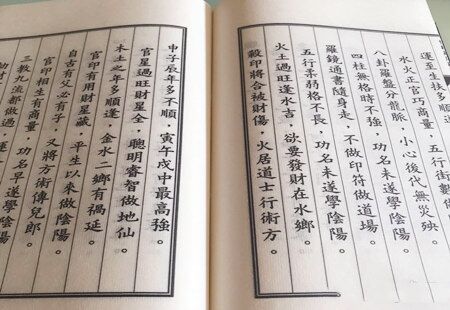 運至生扶多順
五行街
水火正官巧商量。小心後代無災殃。
八卦羅盤分龍脈。功名未遂學陰陽。
四柱無格時不強。不做印符做道場。
羅鏡通書隨身走。功名未遂學陰陽。
五行柔弱格不長。欲要發財在水鄉。
火土過旺逢水吉。火居道士行術方。
殺印將合被財傷。
申子辰年多不順。寅午戌中最高強。
官星過旺財星全。聰明睿智做地仙。
木土之年多順逢。金水二鄉有禍延。
官印有用財星藏。平生以來做陰陽。
自古有父必有子。又將方術傳兒郎。
官印相生有商量。功名早遂學
三教九流都做過
劫財